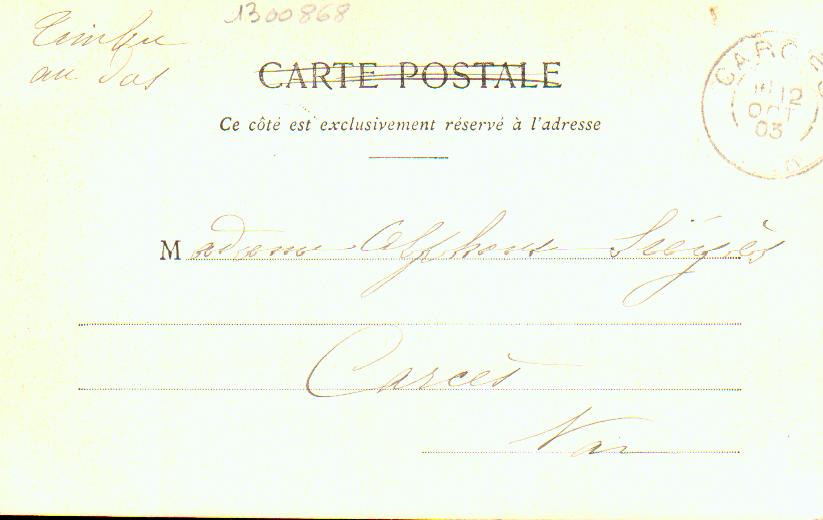 1300868
Timbre
au dos
CARTE POSTALE
Ce côté est exclusivement réservé à l'adresse
Madame Alphonse
Carcès
Var
12
OCT
03